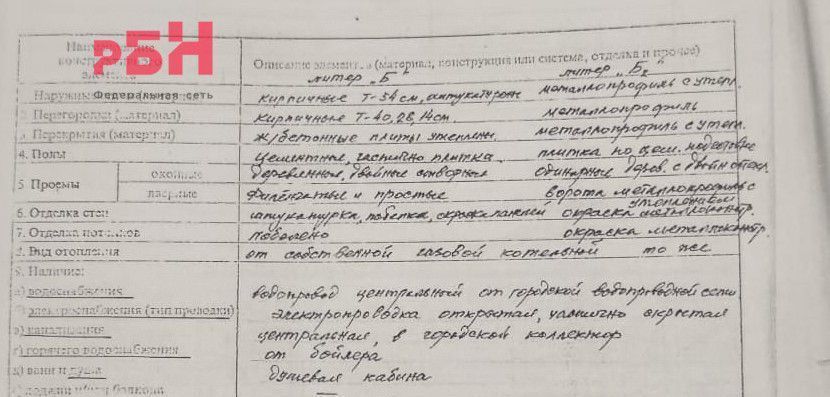 РБН
Федеральная сеть
Наименование конструктивного элемента
Описание элемента (материал, конструкция или система, отделка и прочее)
литер „Б“ литер „Б₂“
Наружные кирпичные Т-54 см, штукатурка металлопрофиль с утепл.
2. Перегородки (материал) кирпичные Т-40, 28, 14 см. металлопрофиль
3. Перекрытия (материал) ж/бетонные плиты утеплены. металлопрофиль с утепл.
4. Полы цементные, частично плитка. плитка по цем. подготовке
5. Проемы оконные деревянные, двойные створные одинарные дерев. с двойн остекл.
дверные филенчатые и простые ворота металлопрофиль с утеплением
6. Отделка стен штукатурка, побелка, окраска окраска металлоконстр.
7. Отделка потолков побелено окраска металлоконстр.
8. Вид отопления от собственной газовой котельной то же
9. Наличие:
а) водоснабжения водопровод центральный от городской водопроводной сети
б) электроснабжения (тип проводки) электропроводка открытая, частично скрытая
в) канализация центральная, в городской коллектор
г) горячего водоснабжения от бойлера
д) ванн и душа душевая кабина
е) лоджии и/или балкона